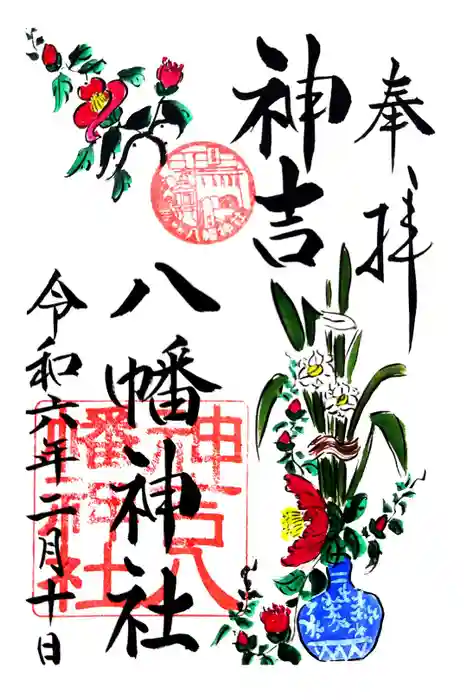 奉拝
神吉
八幡神社
令和六年二月十日
神吉八幡神社